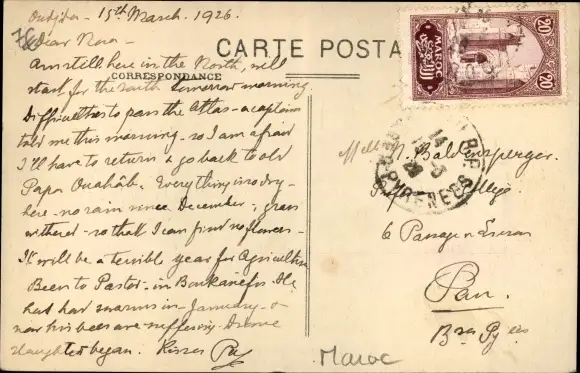 Oudjda - 15th March. 1926.
Dear Nora -
Am still here in the North, will
start for the south tomorrow morning
Difficulties to pass the Atlas - a captain
told me this morning - so I am afraid
I'll have to return & go back to old
Papa Ouahâb. Everything is so dry -
here - no rain since December, grass
withered - so that I can find no flowers -
It will be a terrible year for Agriculture
Been to Pastor - in - He
had swarms in January - &
now his bees are suffering. Drone
slaughter began. Kisses
CARTE POSTA
CORRESPONDANCE
MAROC
20 20
PYRENEES
Melle N. Baldensperger.
Prof. Collège
6 Passage
Pau.
Bses Pyées
Maroc